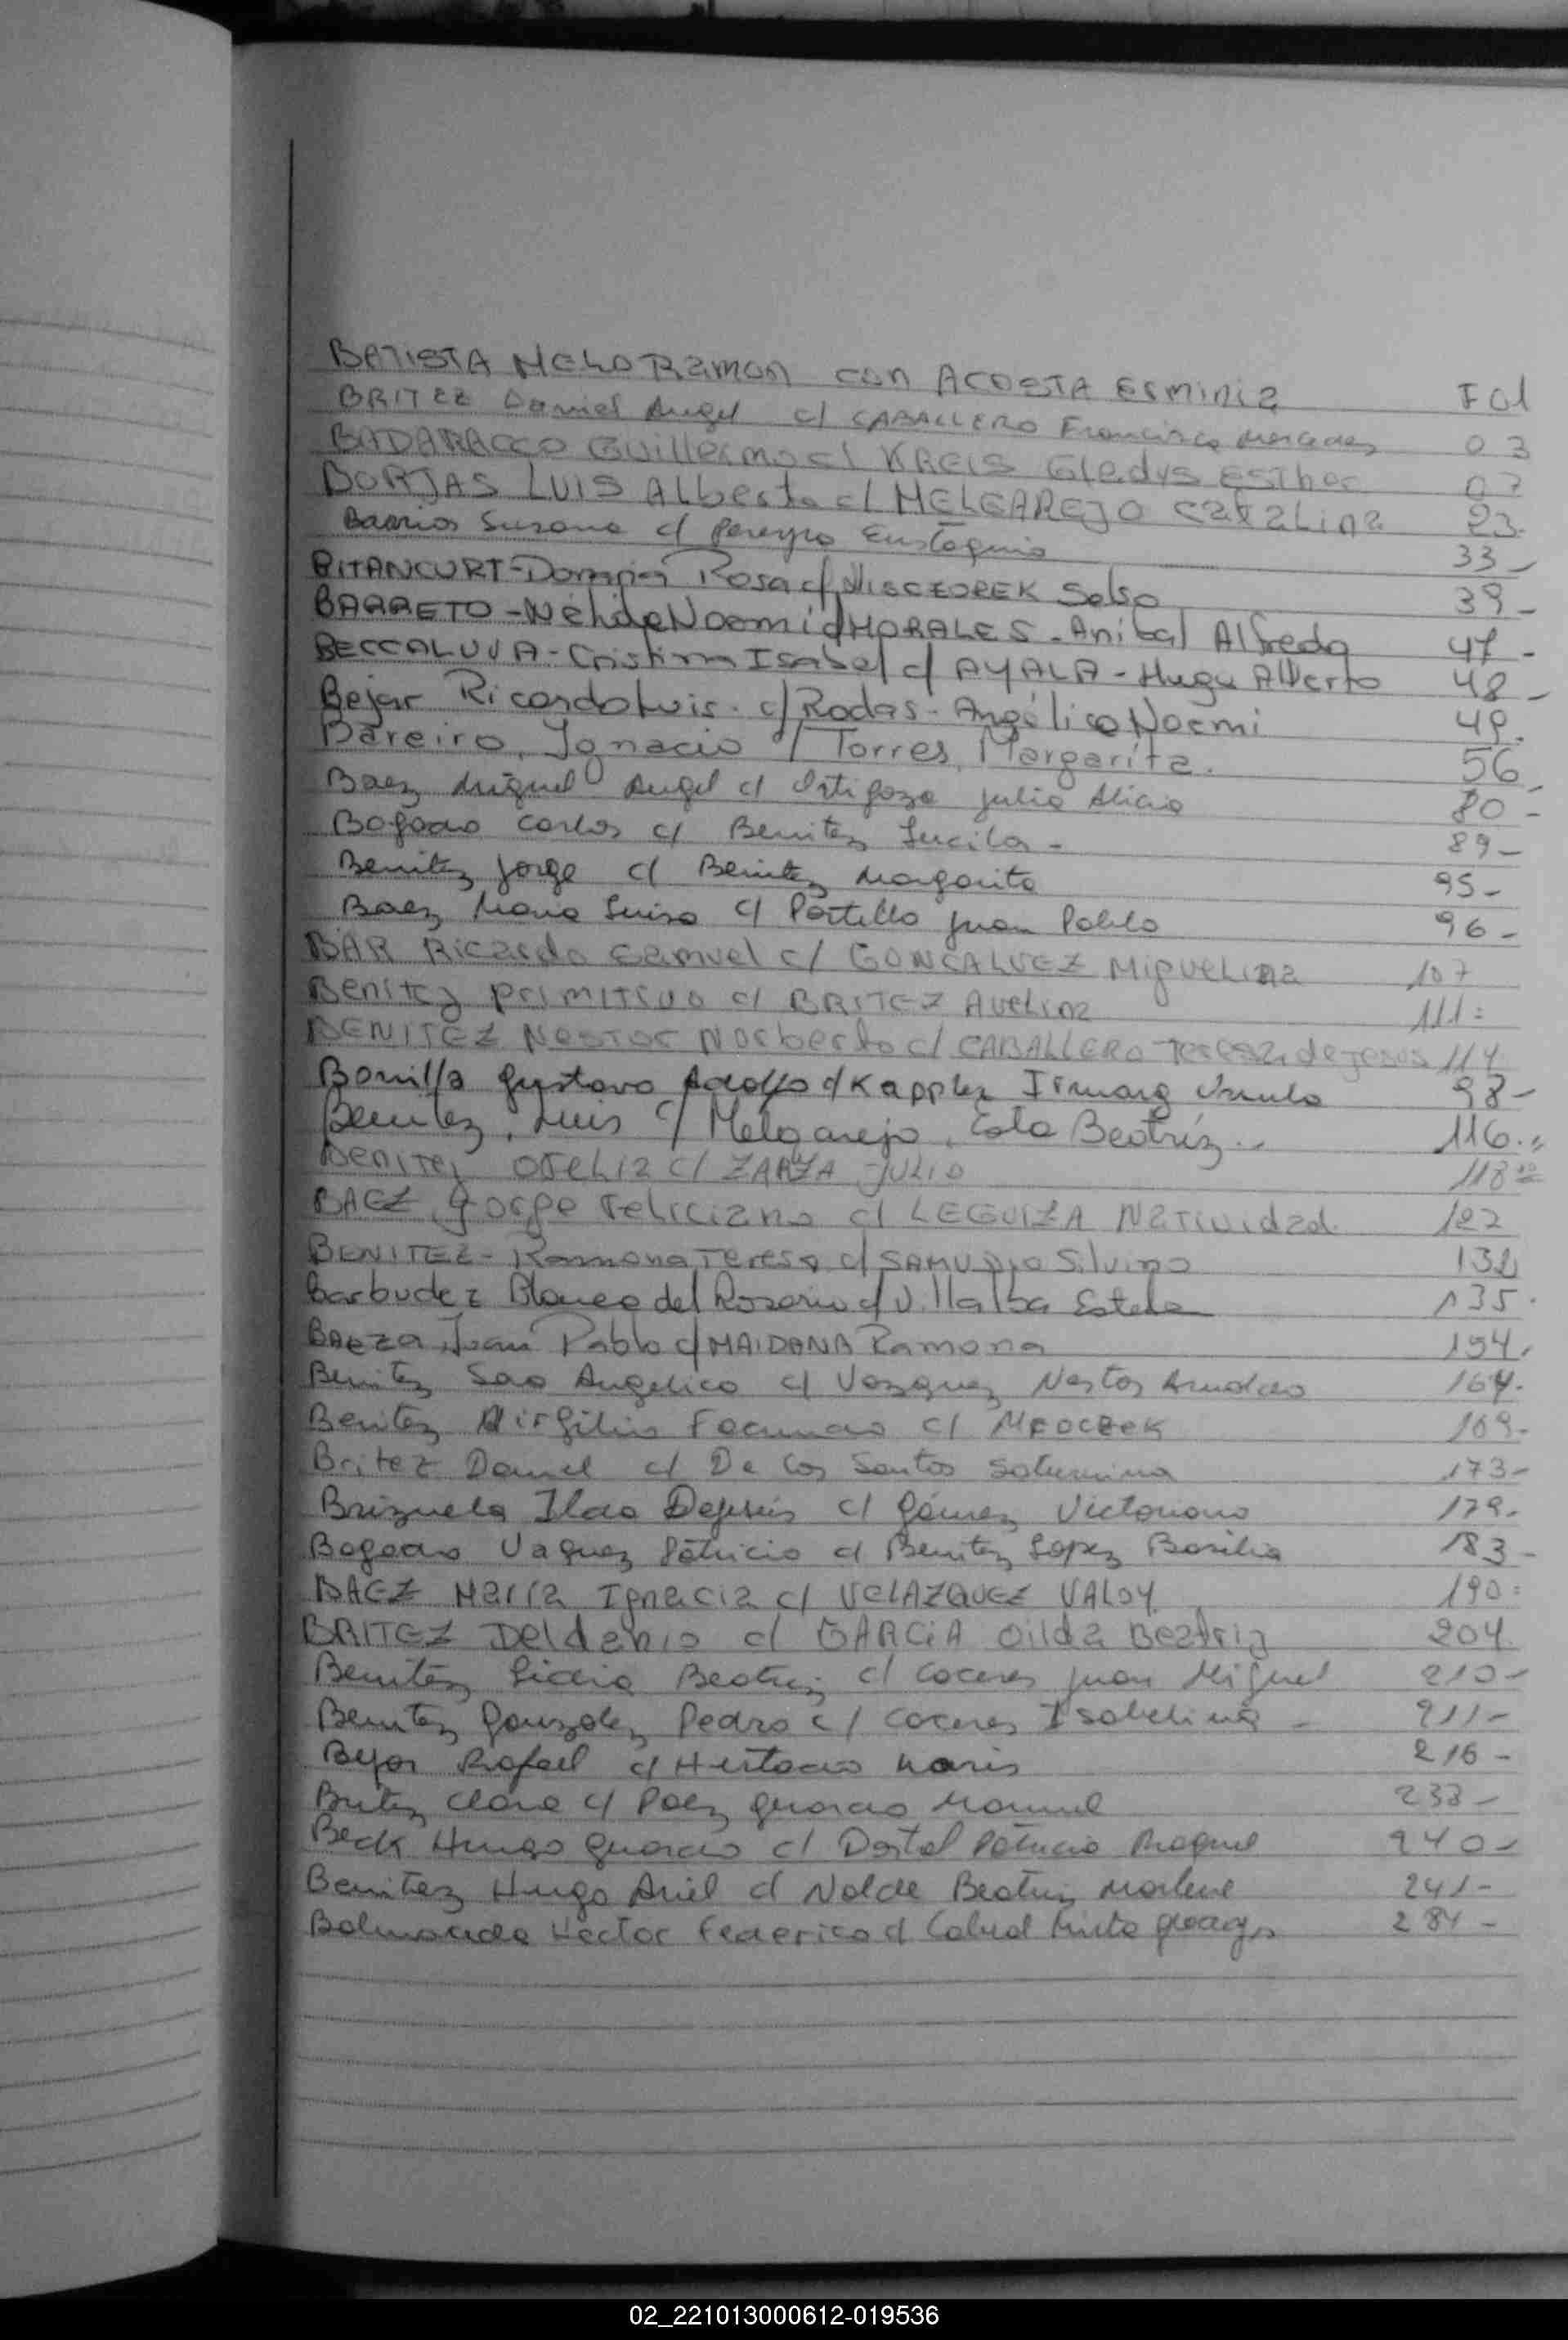 BATISTA MELO Ramon con ACOSTA ESMINIA F 01
BRITEZ Daniel Angel c/ CABALLERO Francisca Mercedes 03
BADARACCO Guillermo c/ KREIS Gladys Esther 07
BORJAS LUIS Alberto c/ MELGAREJO Catalina 23.
Barrios Susana c/ Pereyra Eustaquio 33-
BITANCURT- Rosa c/ Selso 39-
BARRETO-Nelida Noemi c/ MORALES-Anibal Alfredo 47-
BECCALUVA-Cristina Isabel c/ AYALA-Hugo Alberto 48-
Bejar Ricardo Luis. c/ Rodas-Angélica Noemi 49.
Bareiro, Ignacio c/ Torres, Margarita. 56
Baez Miguel Angel c/ Ortigoza Julia Alicia 80-
Bogado Carlos c/ Benitez Lucila- 89-
Benitez Jorge c/ Benitez Margarita 95-
Baez Maria Luisa c/ Portillo Juan Pablo 96-
BAR Ricardo Samuel c/ GONCALVEZ Miguelina 107
Benitez primitivo c/ BRITEZ Avelina 111=
BENITEZ Nestor Norberto c/ CABALLERO Teresa de Jesus 114
Bonilla Gustavo Adolfo c/ Kappler Irmarg Ursula 98-
Benitez, Luis c/ Melgarejo, Beatríz.. 116.,,
Benitez Otelia c/ ZARZA JULIO 118
BAEZ Jorge Feliciano c/ LEGUIZA Natividad. 122
BENITEZ-Ramona Teresa c/ SAMUDIO Silvino 132
Barbudez Blanca del Rosario c/ Villalba Estela 135.
BAEZA, Juan Pablo c/ MAIDANA Ramona 154.
Benitez Sara Angelica c/ Vazquez Nestor Arnaldo 164.
Benitez Virgilio Facundo c/ 169-
Britez Daniel c/ De los Santos Saturnina 173-
Brizuela Ilda Dejesús c/ Gómez Victoriano 179-
Bogado Vaquez Patricio c/ Benitez Lopez Basilia 183-
BAEZ Maria Ignacia c/ VELAZQUEZ VALOY 190=
BRITEZ Deldanio c/ GARCIA Oilda Beatriz 204.
Benitez Licia Beatriz c/ Caceres Juan Miguel 210-
Benitez Gonzalez Pedro c/ Caceres Isabelina- 211-
Bejar Rafael c/ Hurtado Maris 216-
Britez Clara c/ Paez Gerardo Manuel 233-
Beck Hugo Gerardo c/ Dostal Patricia Raquel 240-
Benitez Hugo Ariel c/ Nolde Beatriz Marlene 241-
Balmaceda Hector Federico c/ Cabral Mirta Gladys 284-
02_221013000612-019536